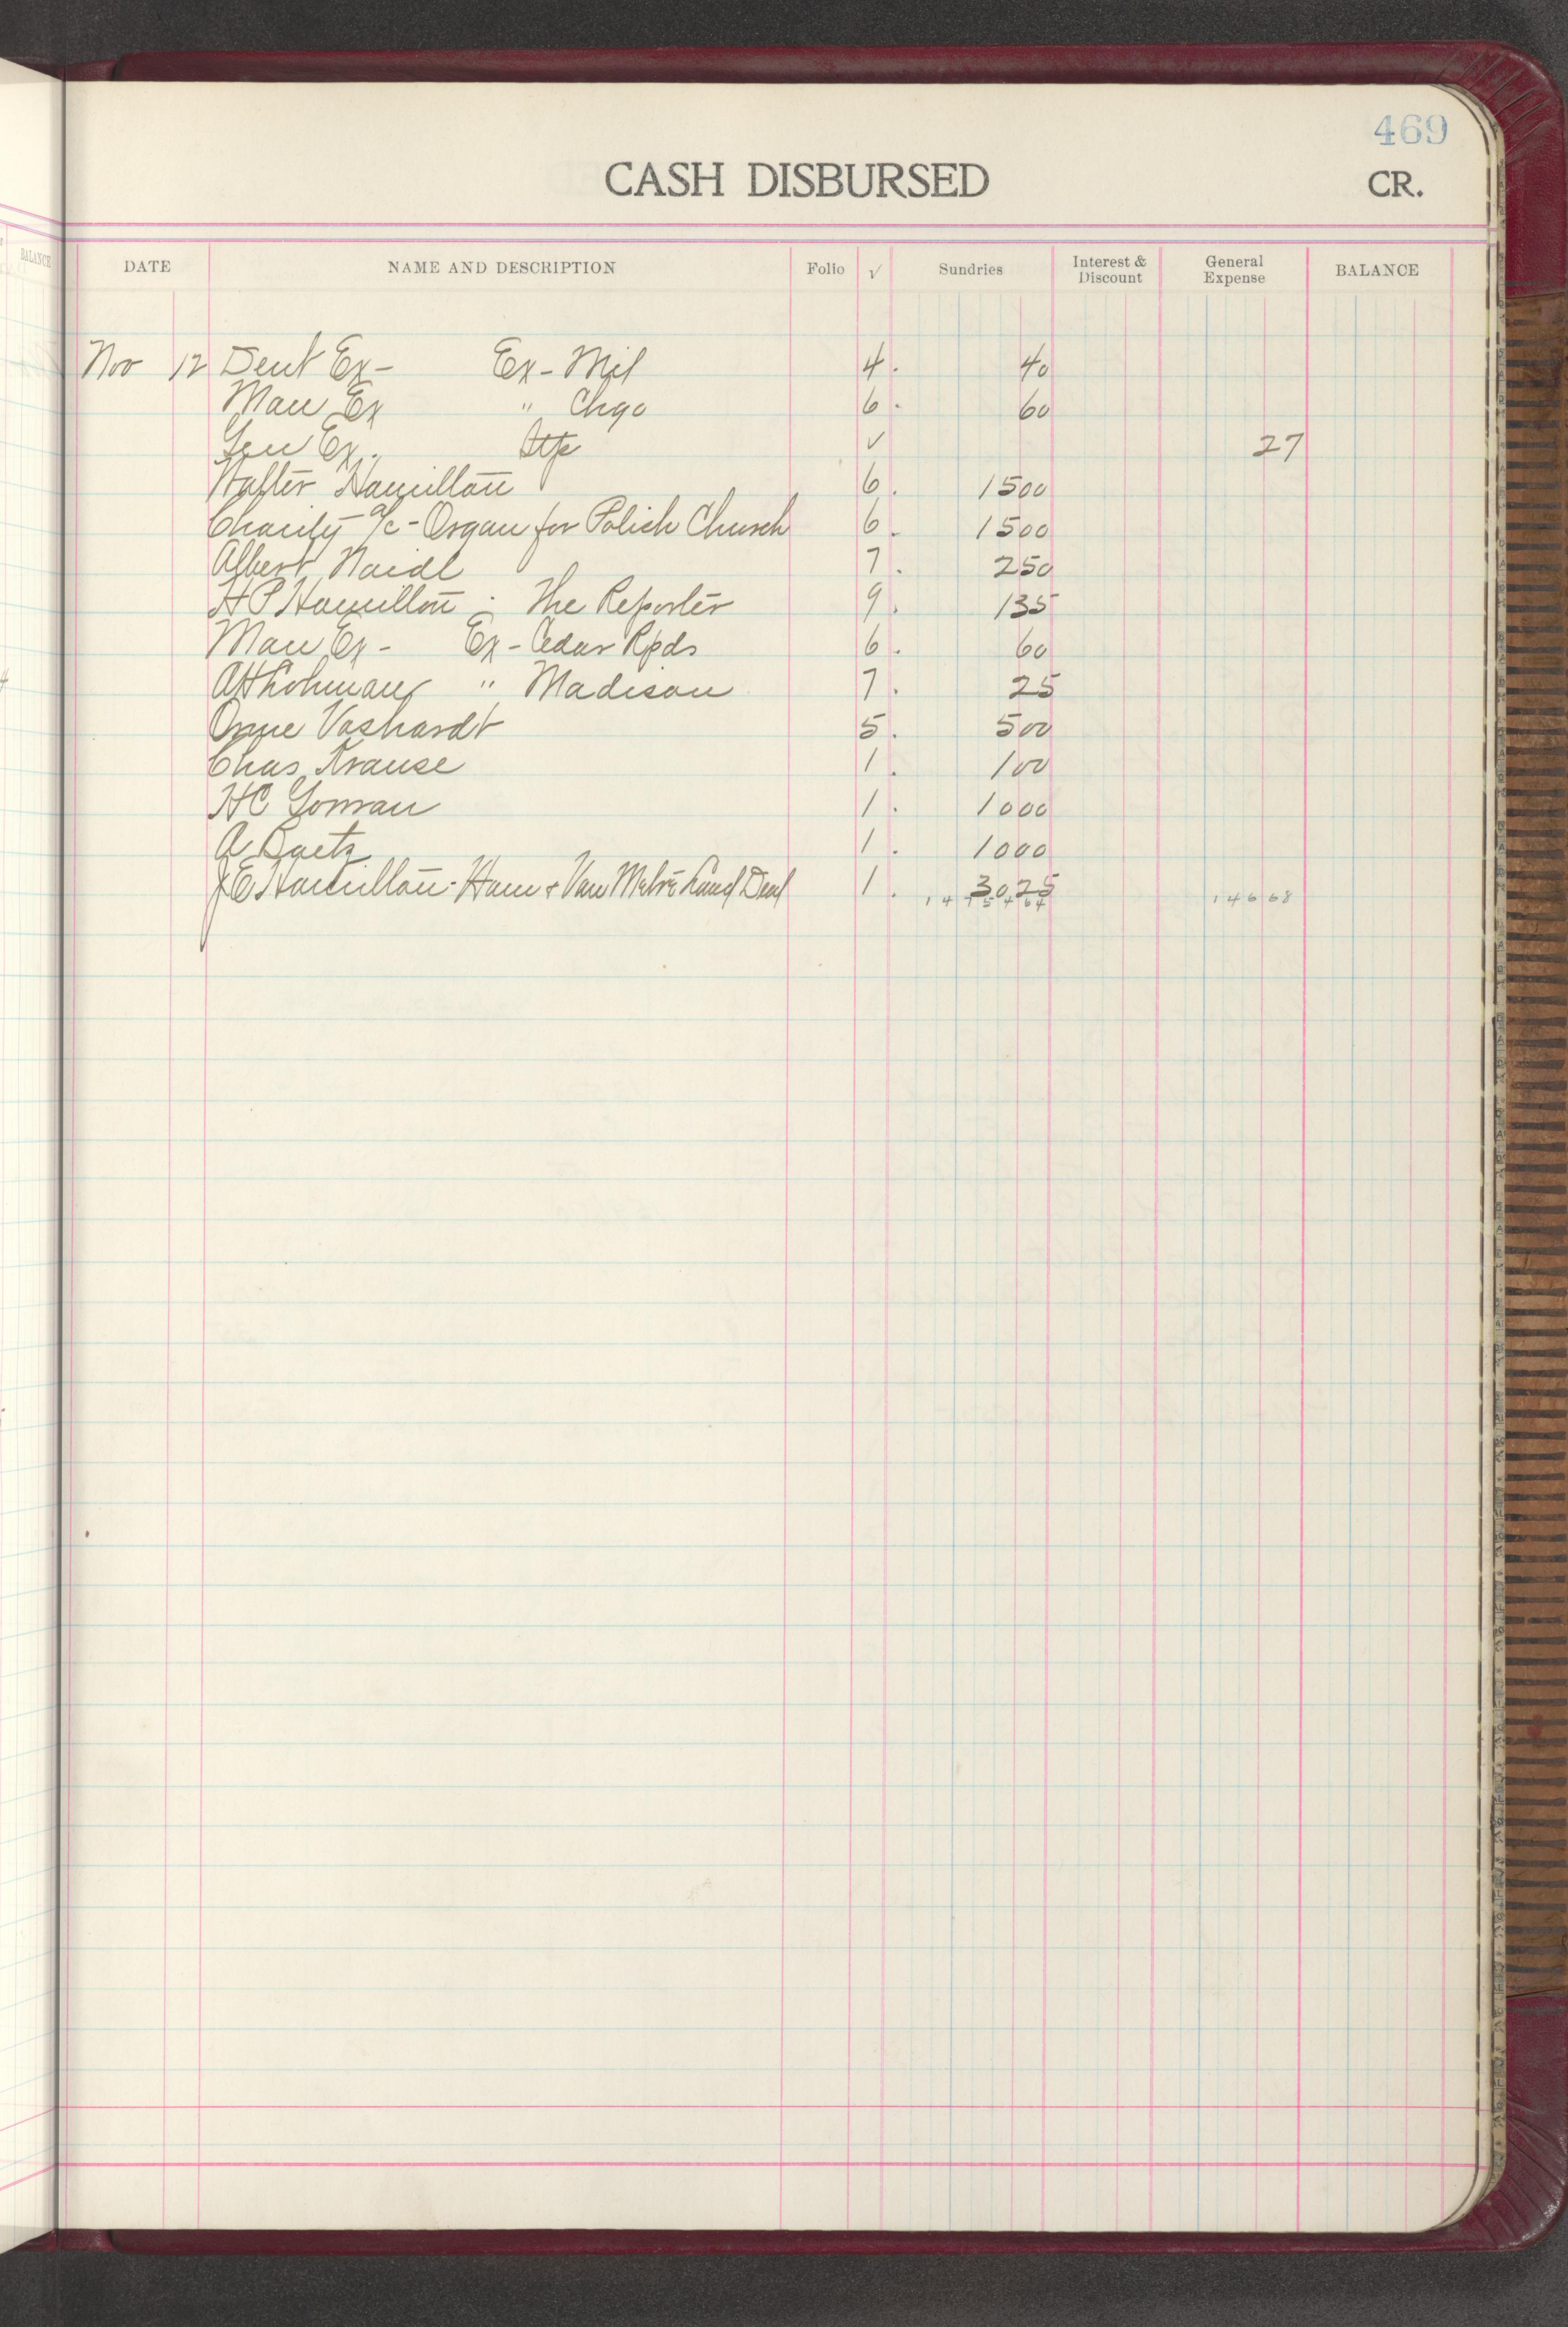 469
CASH DISBURSED CR.
BALANCE
DATE NAME AND DESCRIPTION Folio √ Sundries Interest & Discount General Expense BALANCE
Nov 12 Dent Ex- Ex- Mil 4. 40
Man Ex " Chgo 6. 60
Gen Ex. ✓ 27
Walter Hamilton 6. 1500
Charity a/c - Organ for Polish Church 6. 1500
Albert Naidl 7. 250
H P Hamilton - The Reporter 9. 135
Man Ex - Ex - Cedar Rpds 6. 60
A H Lohman " Madison 7. 25
Orme Vashardt 5. 500
Chas Krause 1. 100
H C Gowran 1. 1000
A Baetz 1. 1000
J E Hamilton - Ham & Van Land Deal 1. 3025
14668